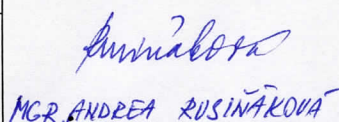 Rusiňáková
MGR. ANDREA RUSIŇÁKOVÁ